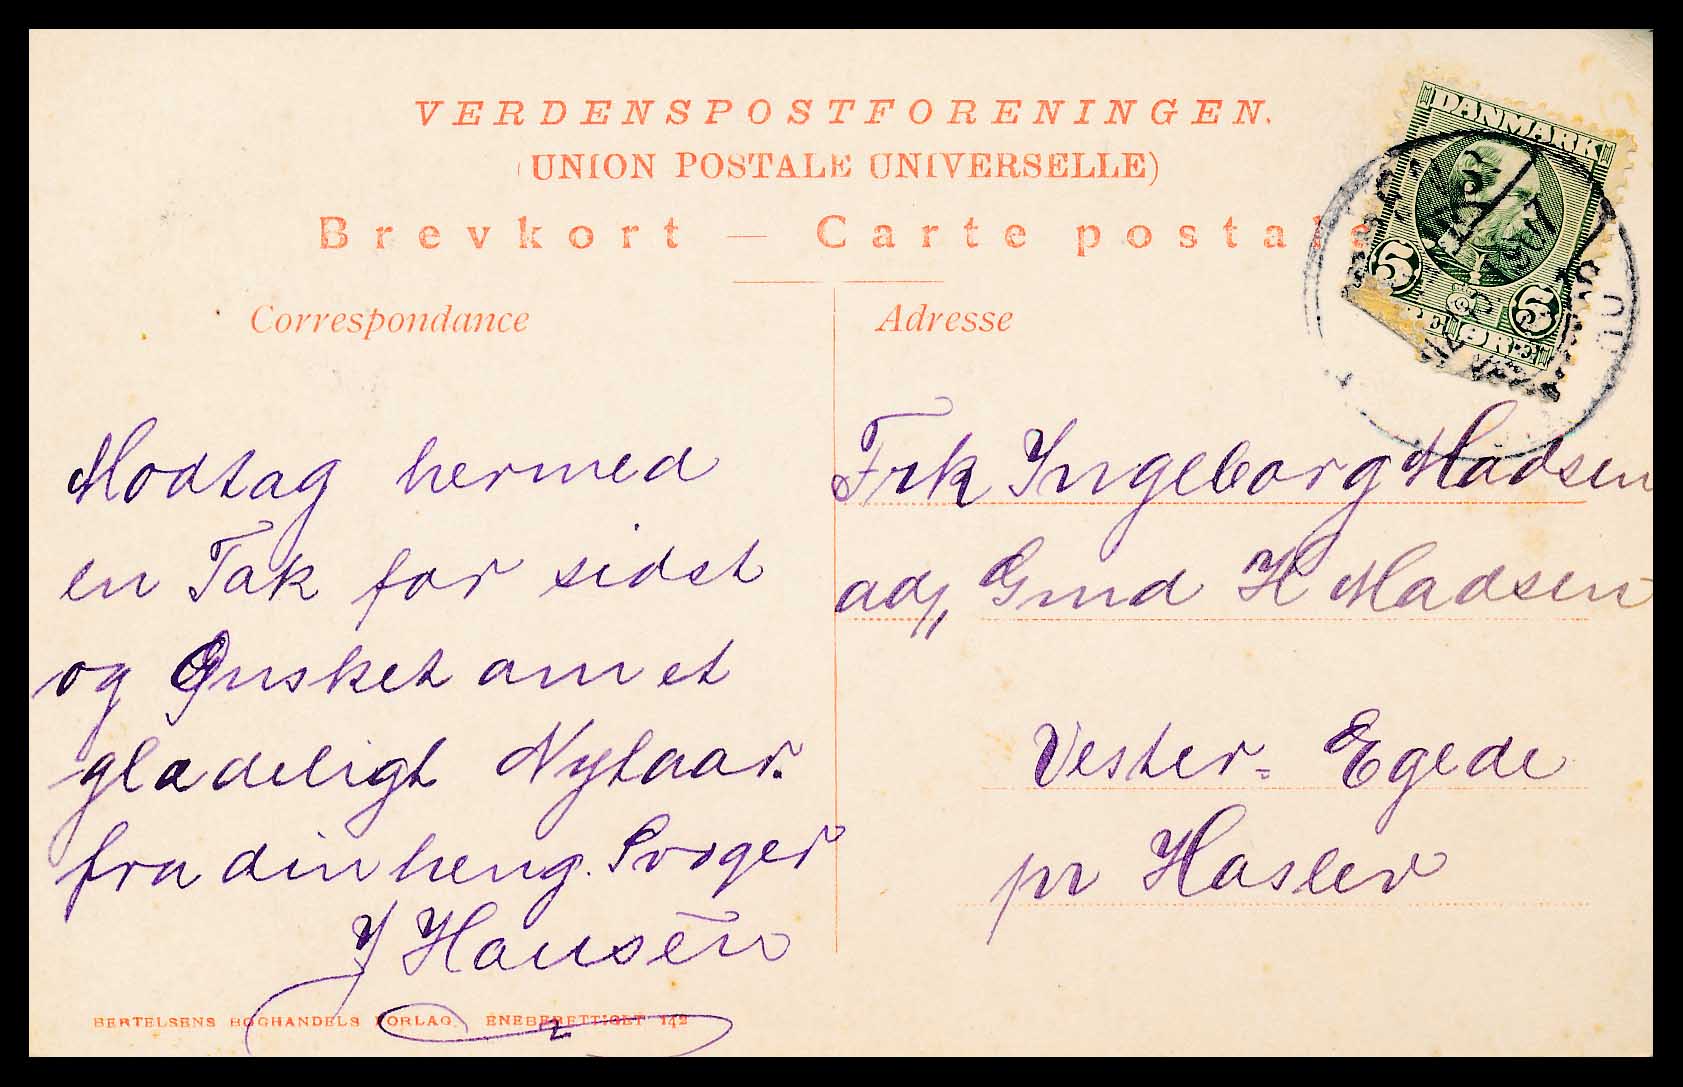 VERDENSPOSTFORENINGEN.
(UNION POSTALE UNIVERSELLE)
Brevkort — Carte postale
Correspondance
Adresse
DANMARK
5 5
ØRE
Modtag hermed
en Tak for sidst
og Ønsket om et
gladeligt Nytaar.
fra din heng. Svoger
J Hansen
Frk Ingeborg Madsen
adr, Gmd H Madsen
Vester-Egede
pr Haslev
BERTELSENS BOGHANDELS FORLAG. ENEBERETTIGET 142
2